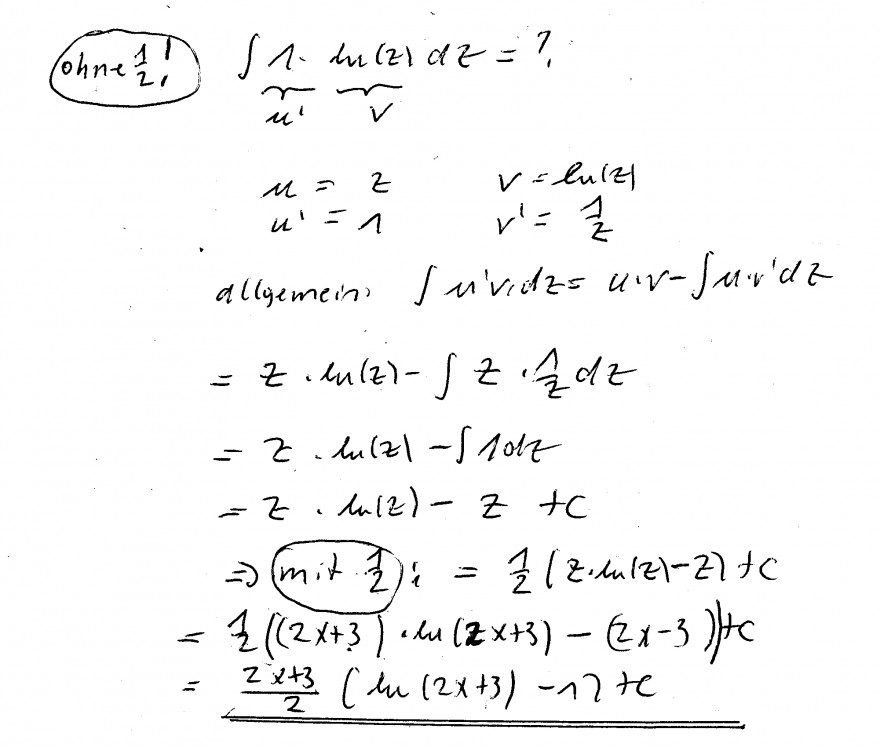 ohne 1/2! ∫ 1 · ln(z) dz = ?
u' v
u = z v = ln(z)
u' = 1 v' = 1/z
allgemein: ∫ u'v dz = u·v - ∫ u·v' dz
= z · ln(z) - ∫ z · 1/z dz
= z · ln(z) - ∫ 1 dz
= z · ln(z) - z + C
⇒ mit 1/2: = 1/2 (z·ln(z) - z) + C
= 1/2 ((2x+3) · ln(2x+3) - (2x-3)) + C
= (2x+3)/2 (ln(2x+3) - 1) + C